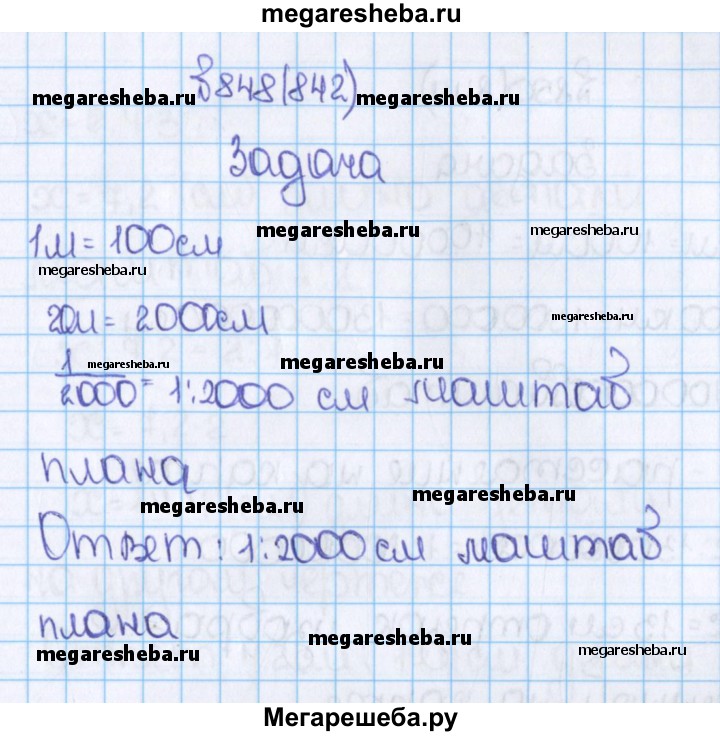 megaresheba.ru
№848(842)
megaresheba.ru megaresheba.ru
Задача
1м = 100см megaresheba.ru megaresheba.ru
megaresheba.ru
20м = 2000см megaresheba.ru
megaresheba.ru megaresheba.ru
1/2000 = 1:2000 см маштаб
плана
megaresheba.ru megaresheba.ru
Ответ: 1:2000 см маштаб
плана
megaresheba.ru megaresheba.ru megaresheba.ru
Мегарешеба.ру